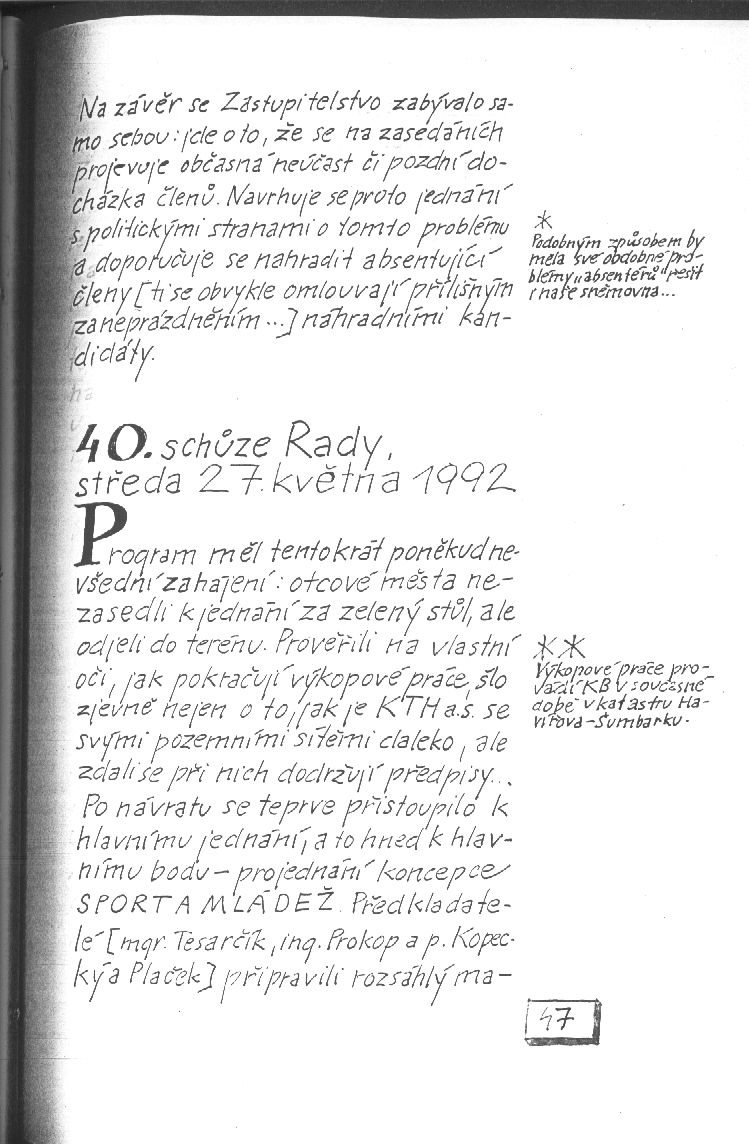 Na závěr se Zastupitelstvo zabývalo sa-
mo sebou: jde o to, že se na zasedáních
projevuje občasná neúčast či pozdní do-
cházka členů. Navrhuje se proto jednání
s politickými stranami o tomto problému
a doporučuje se nahradit absentující
členy [ti se obvykle omlouvají přílišným
zaneprázdněním ...] náhradními kan-
didáty.
*
Podobným způsobem by
měla své obdobné pro-
blémy „absentérů" řešit
i naše sněmovna...
40. schůze Rady,
středa 27. května 1992
Program měl tentokrát poněkud ne-
všední zahájení: otcové města ne-
zasedli k jednání za zelený stůl, ale
odjeli do terénu. Prověřili na vlastní
oči, jak pokračují výkopové práce, šlo
zjevně nejen o to, jak je KTH a.s. se
svými pozemními sítěmi daleko, ale
zdali se při nich dodržují předpisy...
Po návratu se teprve přistoupilo k
hlavnímu jednání, a to hned k hlav-
nímu bodu – projednání koncepce
SPORT A MLÁDEŽ. Předkladate-
lé [mgr. Tesarčík, ing. Prokop a p. Kopec-
ký a Plaček] připravili rozsáhlý ma-
**
Výkopové práce pro-
vádí KB v současné
době v katastru Ha-
vířova-Šumbarku.
47